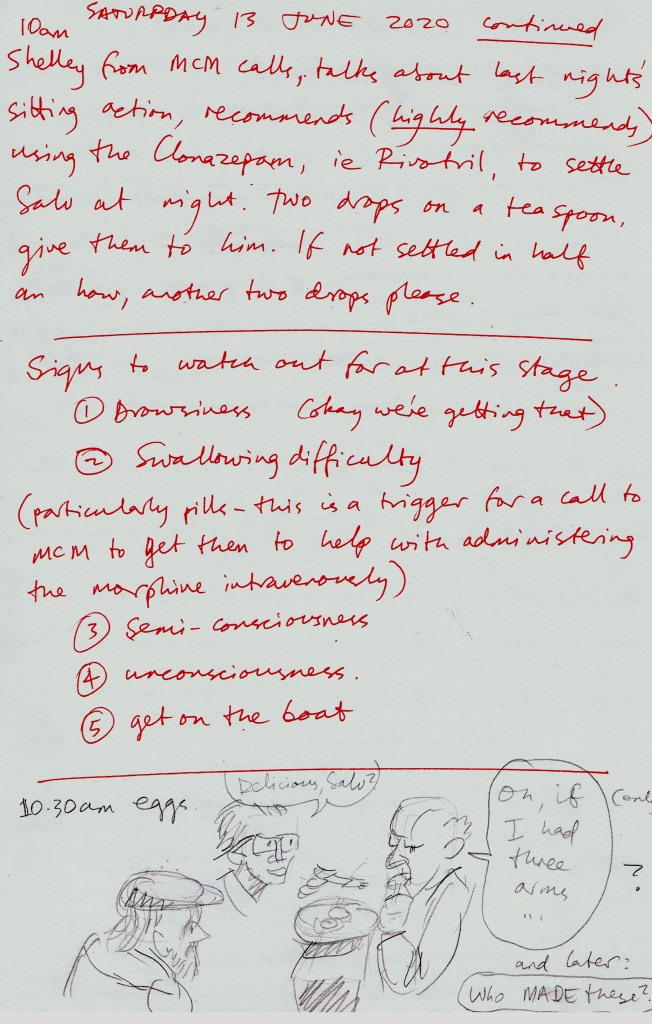 10am SATURDAY 13 JUNE 2020 continued
Shelley from MCM calls, talks about last night's
sitting action, recommends (highly recommends)
using the Clonazepam, ie Rivotril, to settle
Salv at night. Two drops on a teaspoon,
give them to him. If not settled in half
an hour, another two drops please.
Signs to watch out for at this stage.
① Drowsiness (okay we're getting that)
② Swallowing difficulty
(particularly pills - this is a trigger for a call to
MCM to get them to help with administering
the morphine intravenously)
③ Semi-consciousness
④ unconsciousness.
⑤ get on the boat
10.30am eggs
Delicious, Salv?
Oh, if
I had
three
arms
...
?
and later:
Who MADE these?